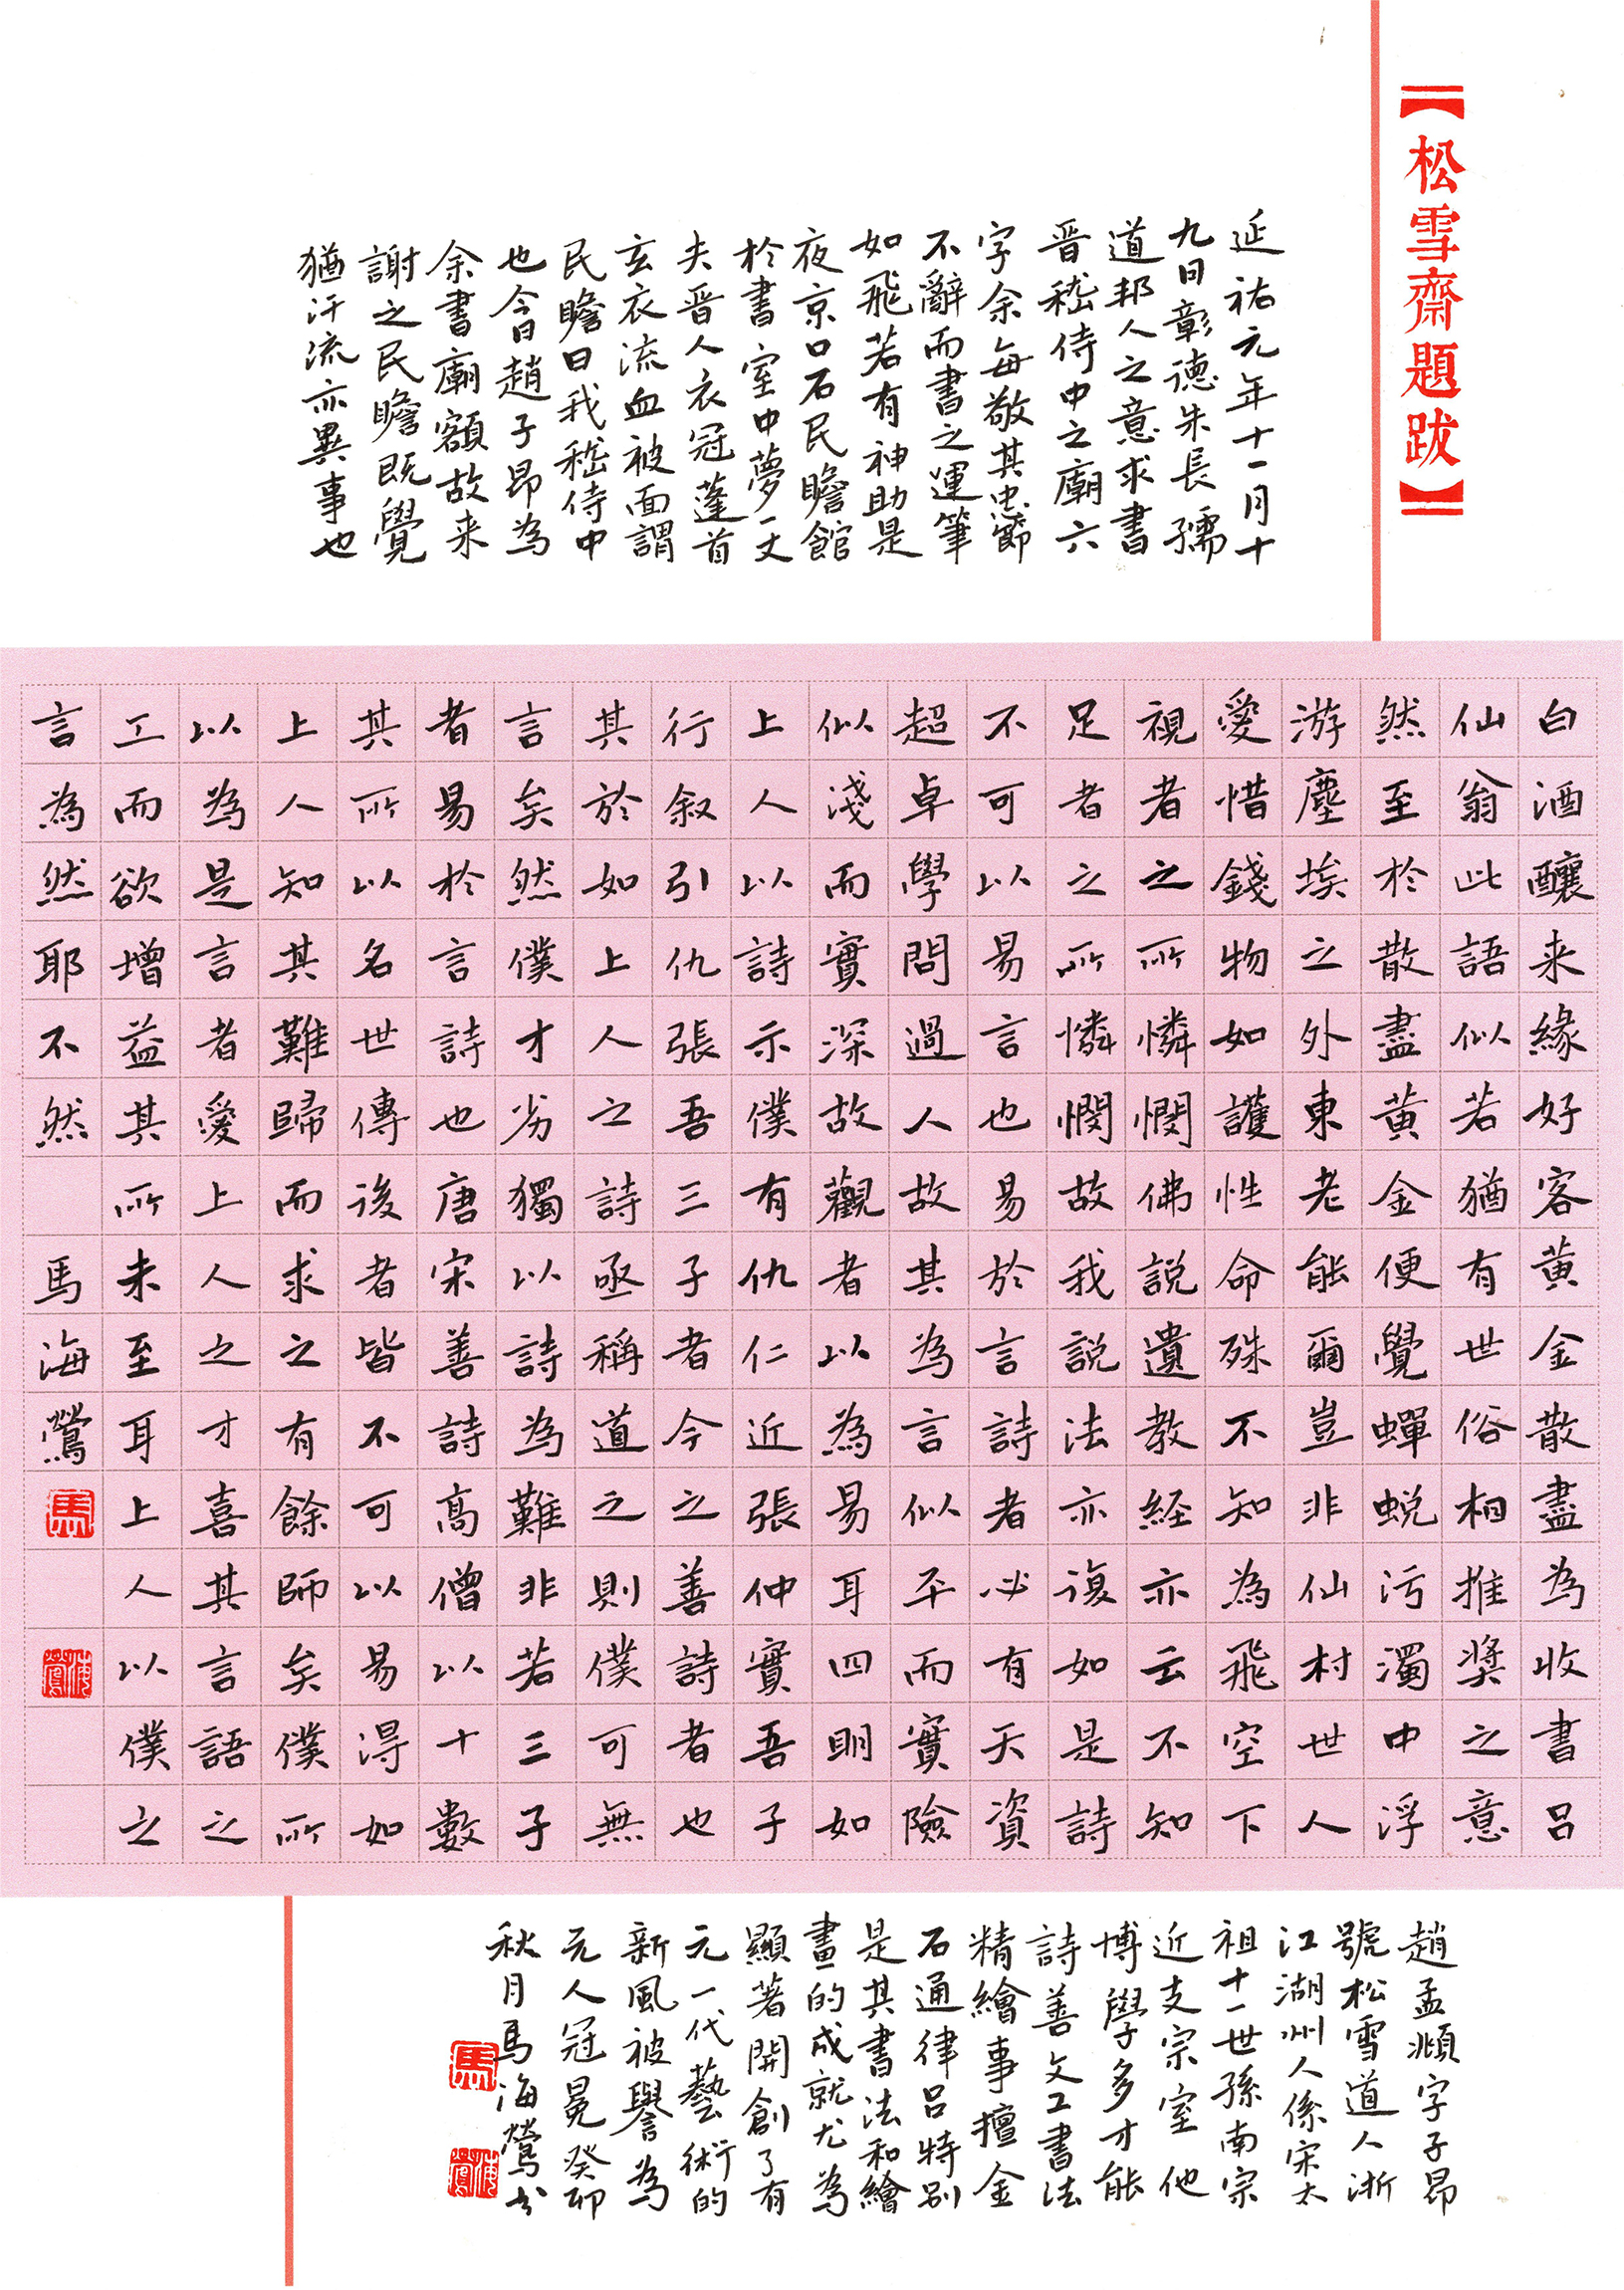 【松雪齋題跋】
延祐元年十一月十
九日彰德朱長孺
道邦人之意求書
晋嵇侍中之廟六
字余每敬其忠節
不辭而書之運筆
如飛若有神助是
夜京口石民瞻館
於書室中夢一丈
夫晋人衣冠蓬首
玄衣流血被面謂
民瞻曰我嵇侍中
也今日趙子昂為
余書廟額故来
謝之民瞻既覺
猶汗流亦異事也
白酒釀来緣好客黄金散盡為收書吕
仙翁此語似若猶有世俗相推奬之意
然至於散盡黄金便覺蟬蜕污濁中浮
游塵埃之外東老能爾豈非仙村世人
愛惜錢物如護性命殊不知為飛空下
視者之所憐憫佛説遺教經亦云不知
足者之所憐憫故我説法亦復如是詩
不可以易言也易於言詩者必有天資
超卓學問過人故其為言似平而實險
似淺而實深故觀者以為易耳四明如
上人以詩示僕有仇仁近張仲實吾子
行叙引仇張吾三子者今之善詩者也
其於如上人之詩亟稱道之則僕可無
言矣然僕才劣獨以詩為難非若三子
者易於言詩也唐宋善詩高僧以十數
其所以名世傳後者皆不可以易得如
上人知其難歸而求之有餘師矣僕所
以為是言者愛上人之才喜其言語之
工而欲增益其所未至耳上人以僕之
言為然耶不然
馬海鶯
馬
海鶯
趙孟頫字子昂
號松雪道人浙
江湖州人係宋太
祖十一世孫南宗
近支宗室他
博學多才能
詩善文工書法
精繪事擅金
石通律吕特別
是其書法和繪
畫的成就尤為
顯著開創了有
元一代藝術的
新風被譽為
元人冠冕癸卯
秋月馬海鶯书
馬
海鶯